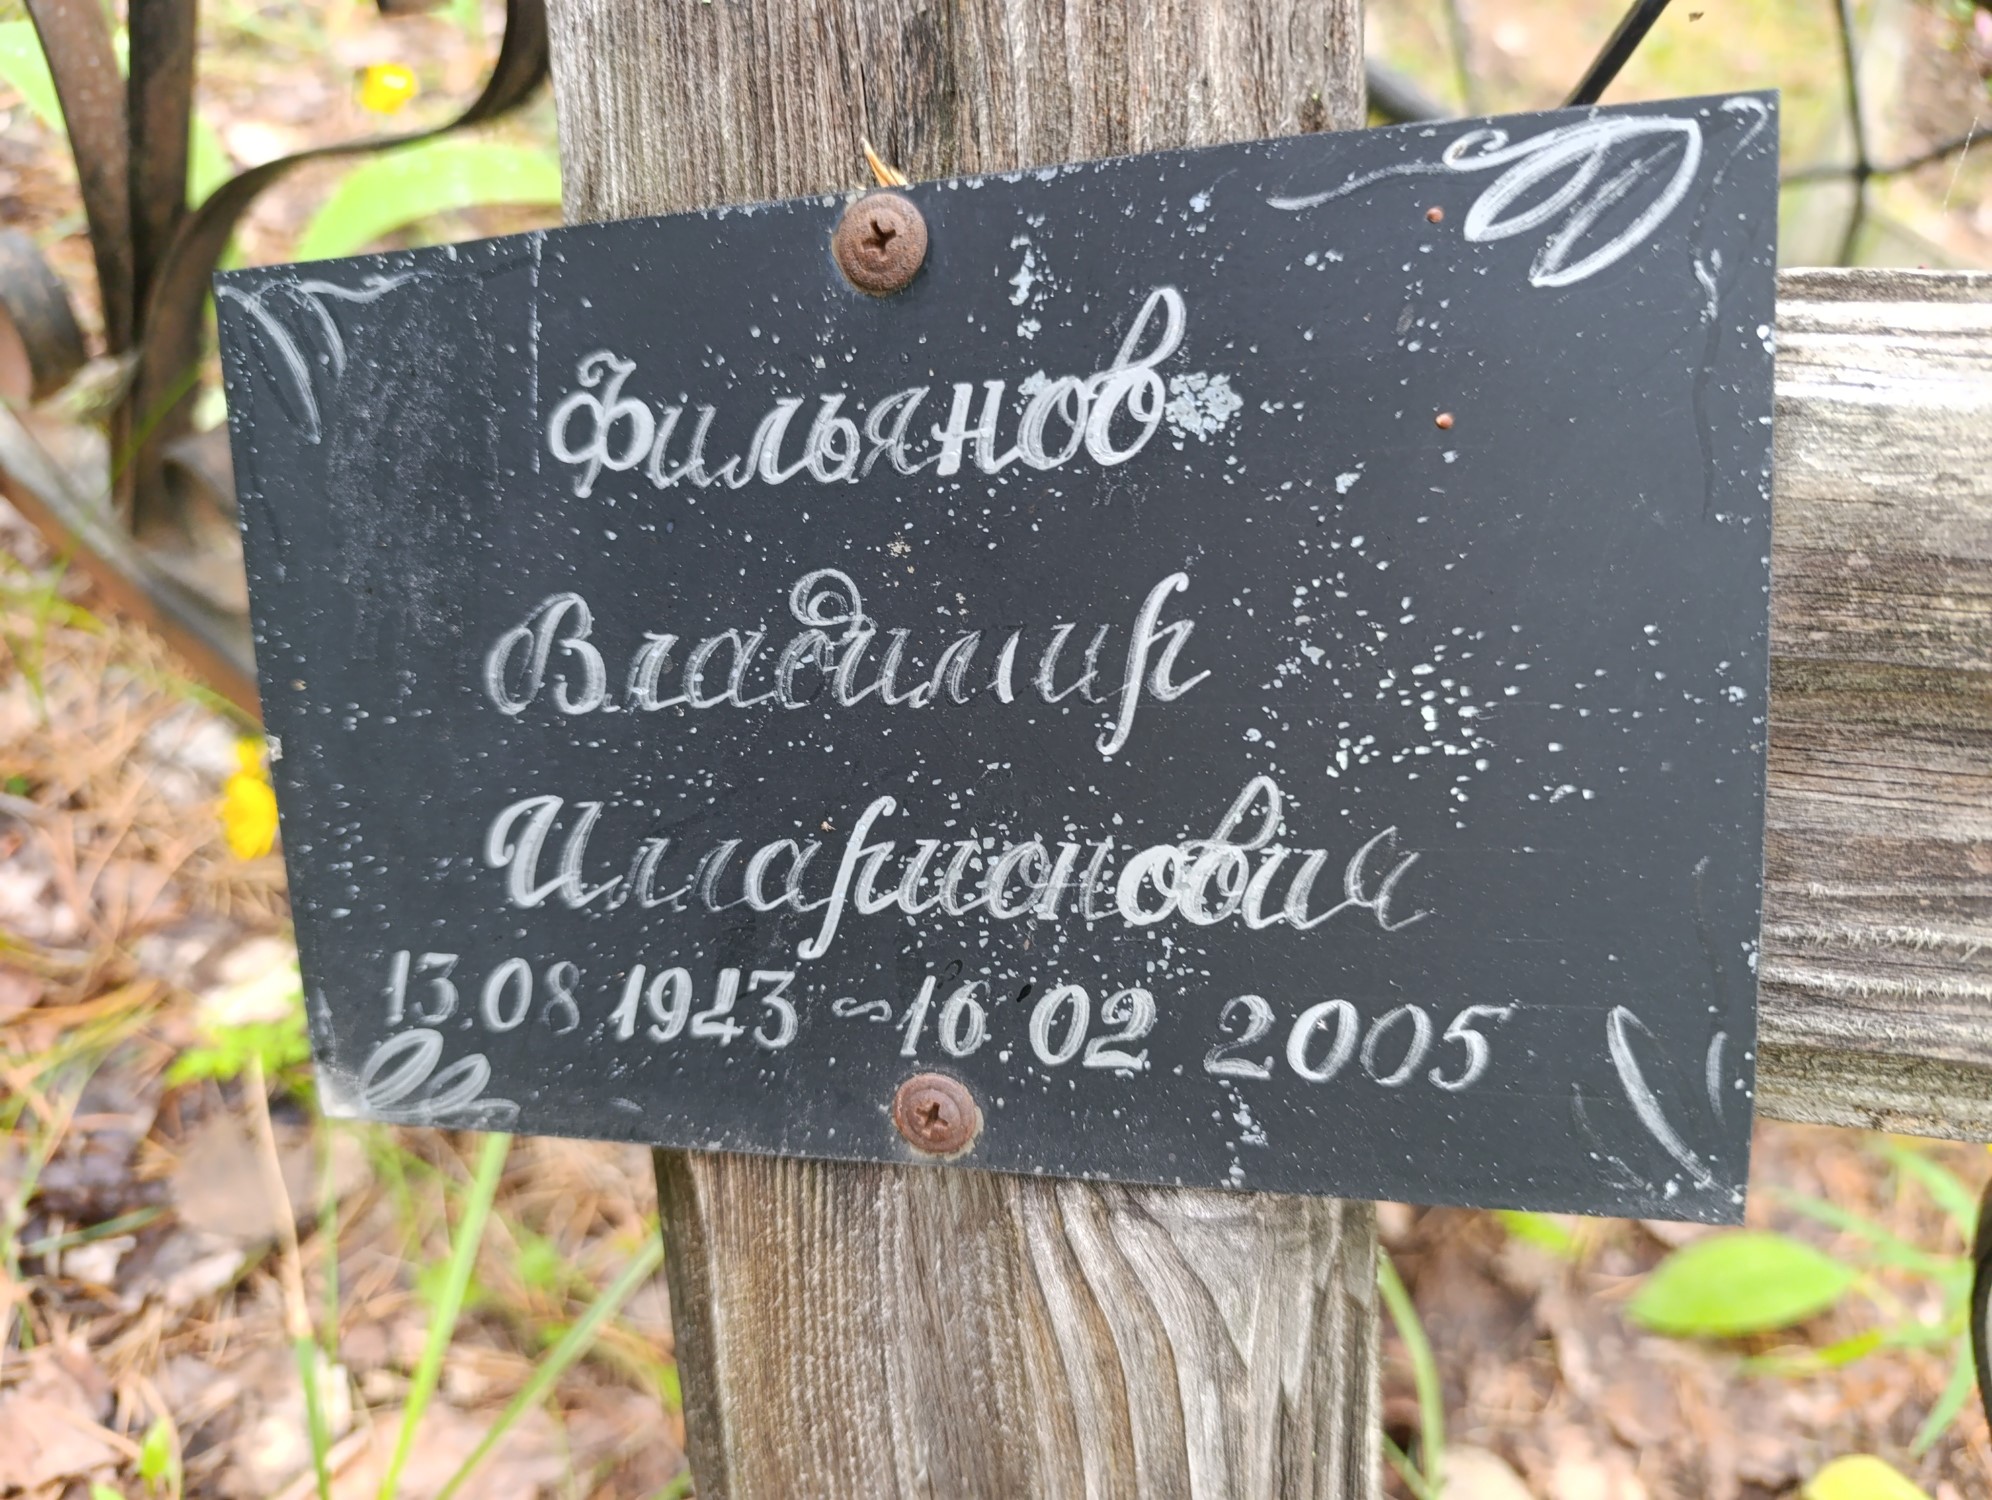 Фильянов
Владимир
Илларионович
13.08 1943 ~ 16 02 2005